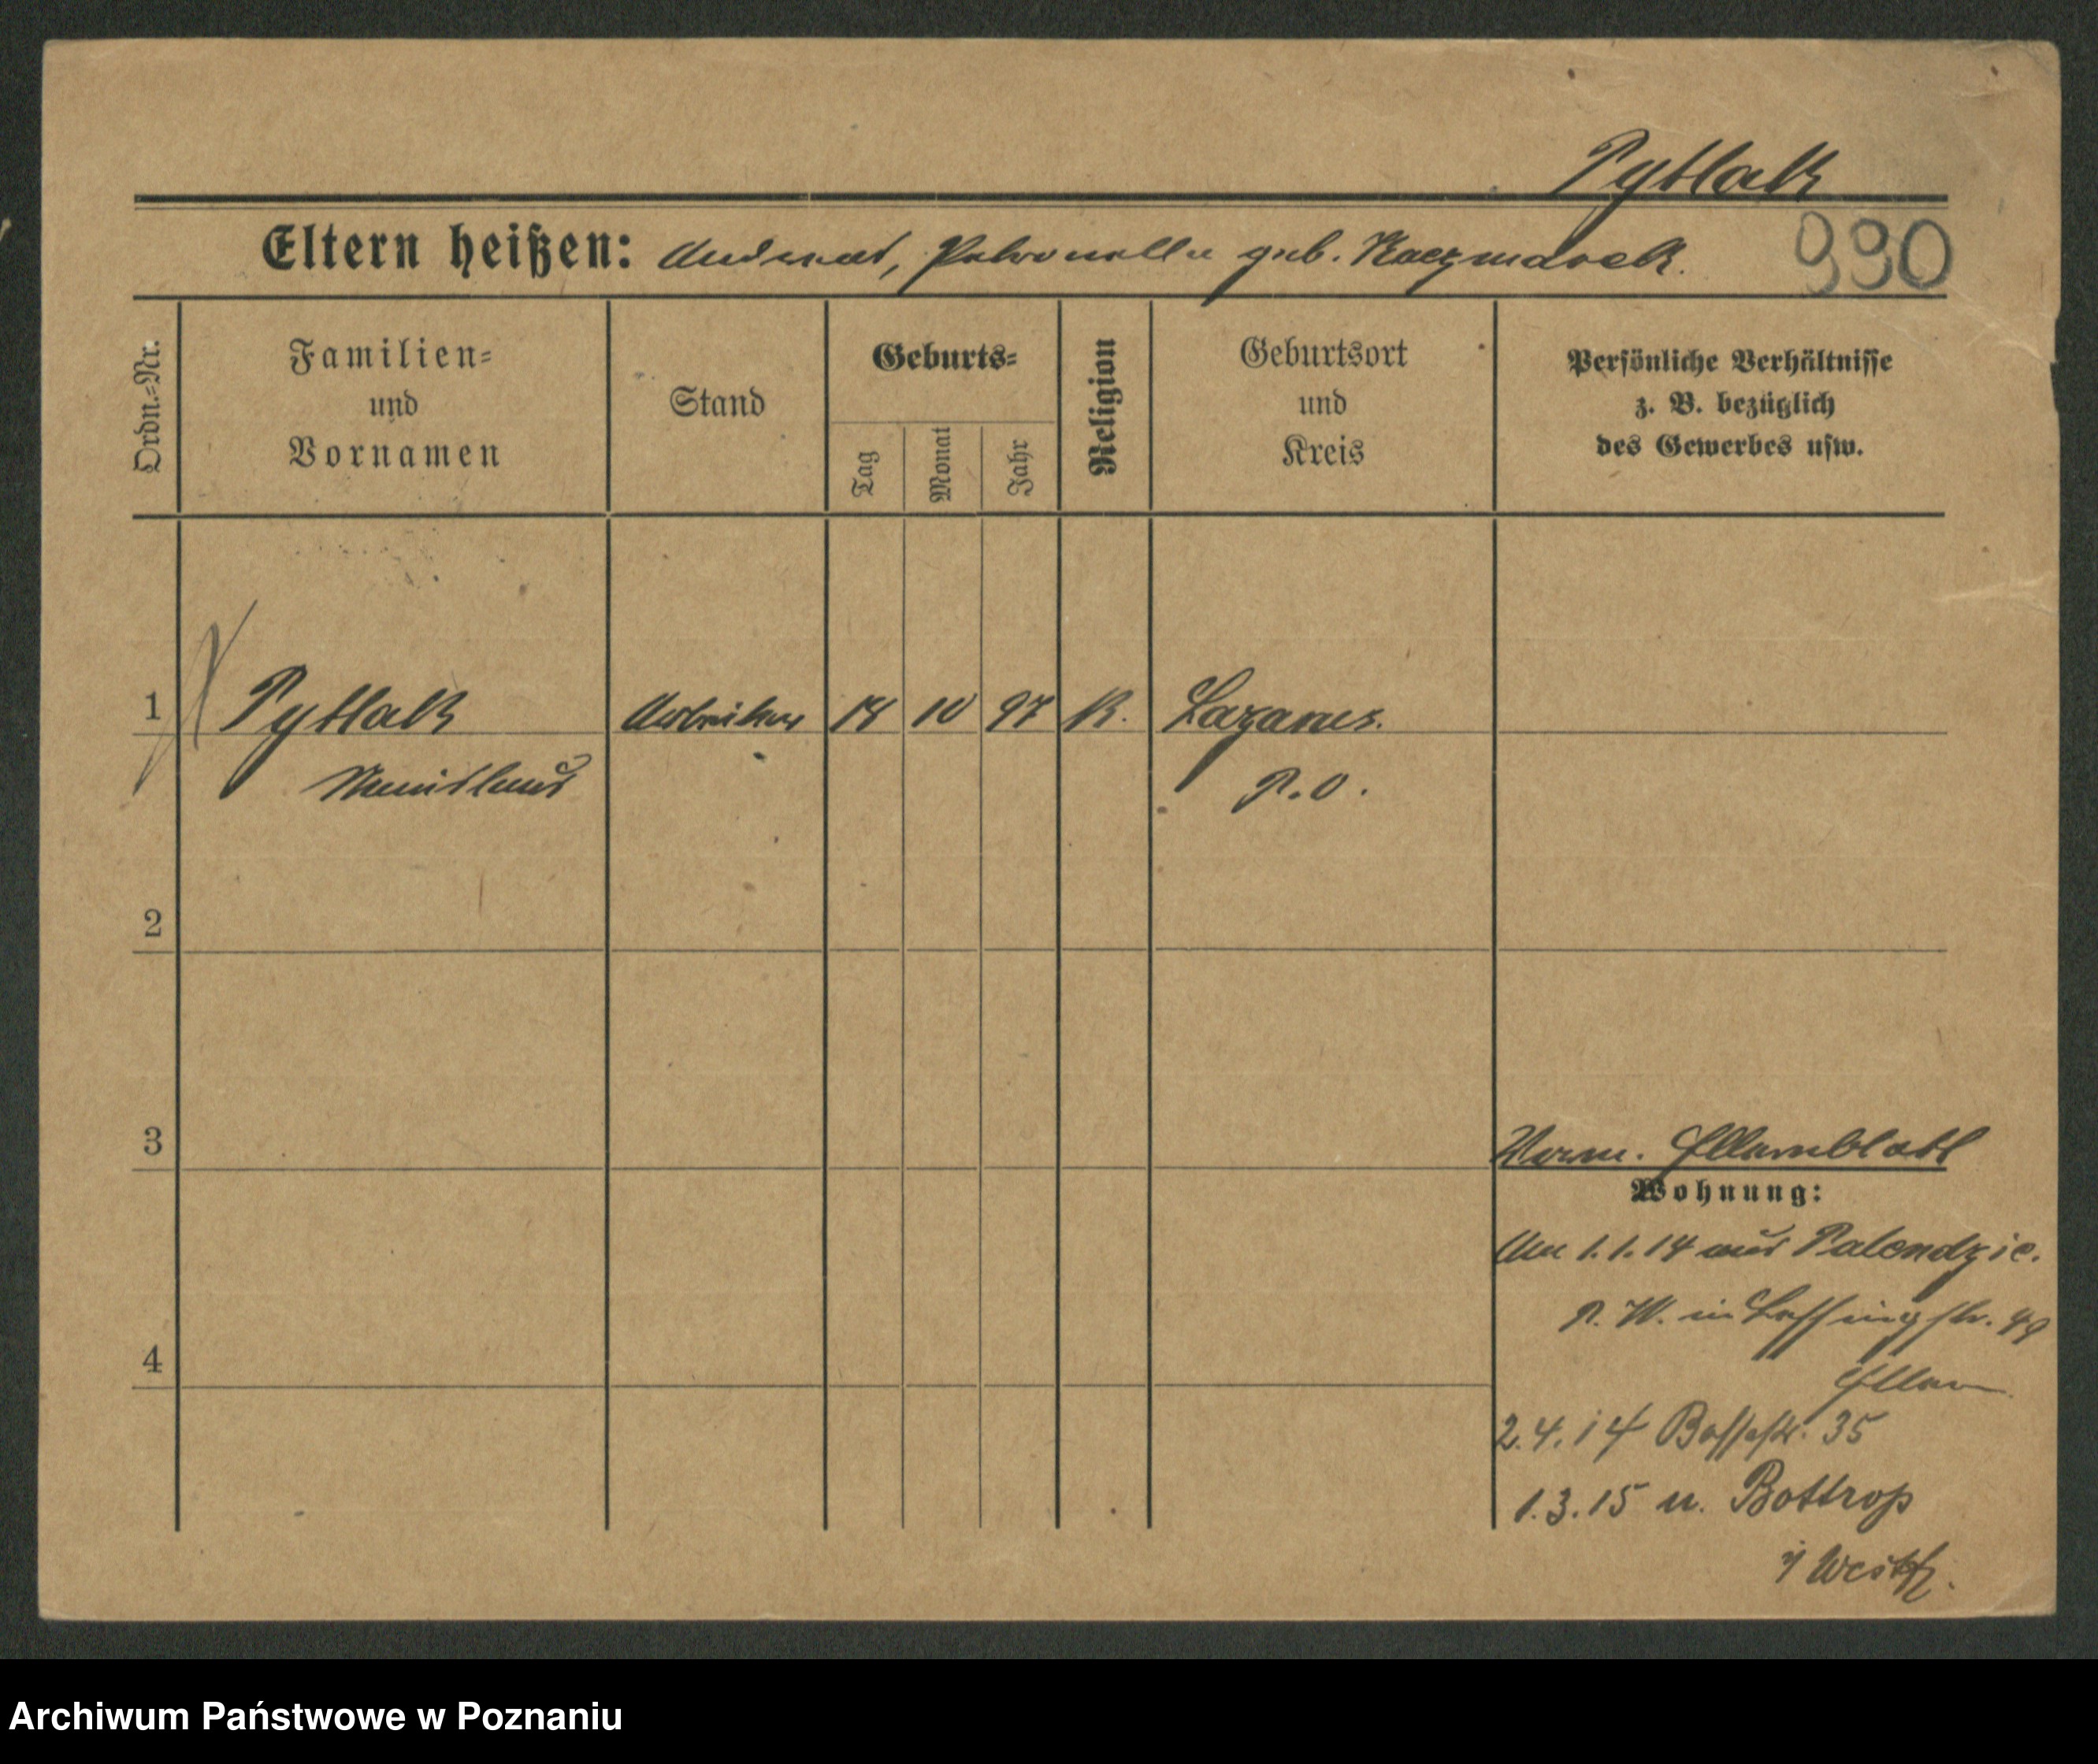 Pytlak
Eltern heißen: Andreas, Petronella geb. Kaczmarek.
990
Ordn.-Nr.
Familien- und Vornamen
Stand
Geburts-
Tag
Monat
Jahr
Religion
Geburtsort und Kreis
Persönliche Verhältnisse
z. B. bezüglich
des Gewerbes usw.
1 Pytlak Arbeiter 18 10 97 K. Lazarus.
Stanislaus P.O.
2
3
Verm. Elternblatt
Wohnung:
Am 1.1.14 aus Palendzie.
P. W. in Lessingstr. 49
Eltern
4
2.4.14 Bossestr. 35
1.3.15 n. Bottrop
i/ Westf.
Archiwum Państwowe w Poznaniu